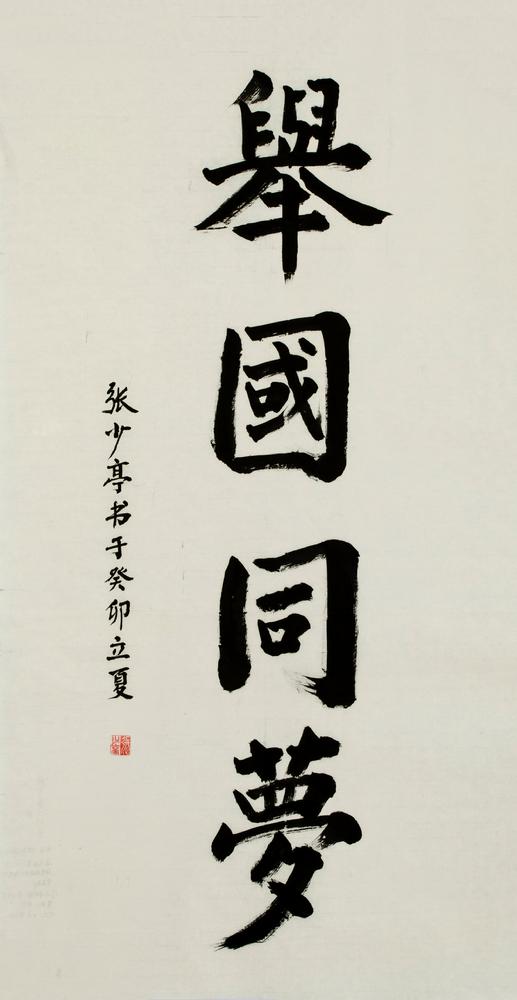 舉國同夢
张少亭书于癸卯立夏